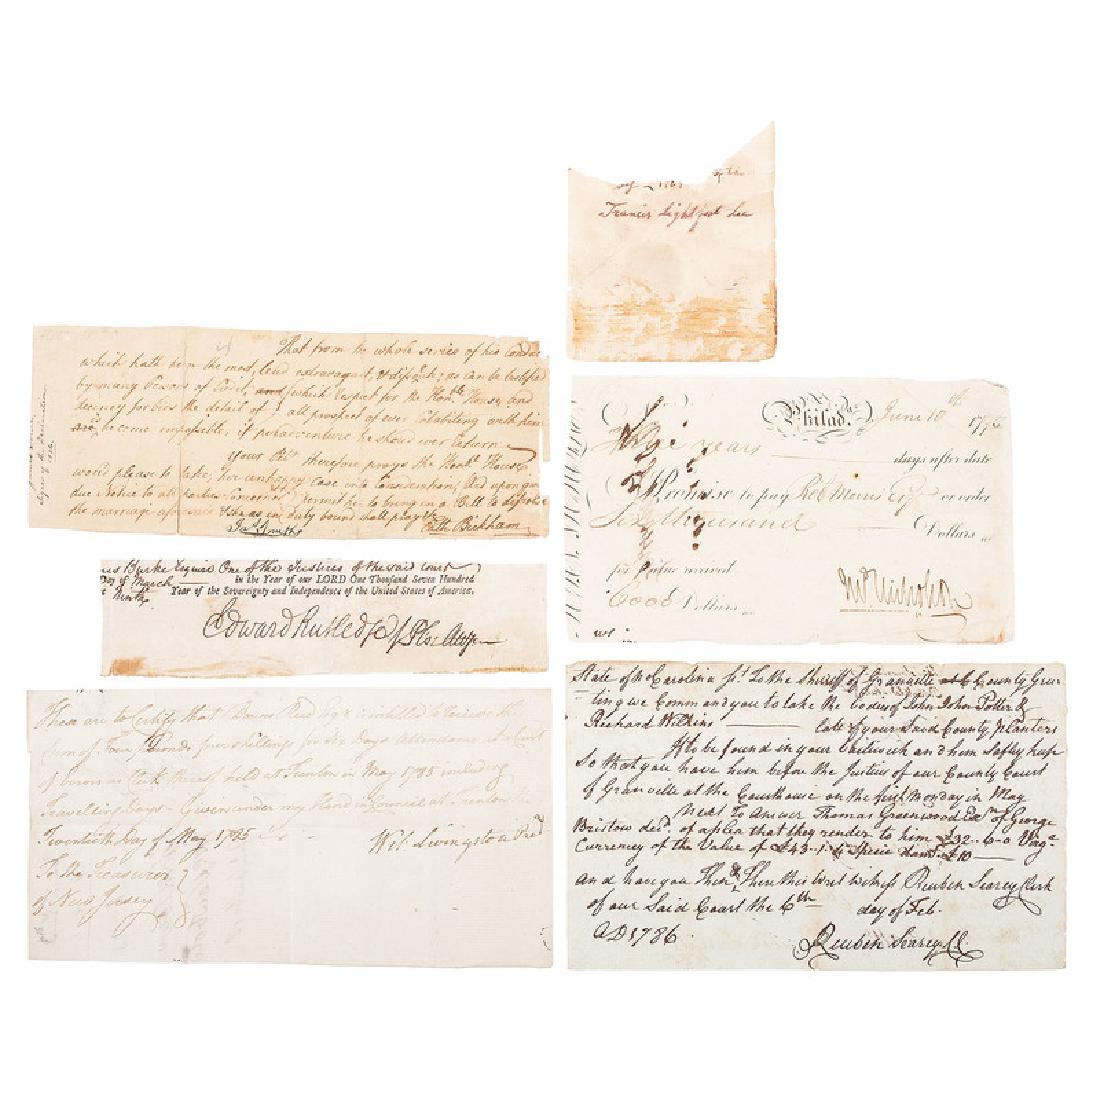 Francis Lightfoot Lee
That from the whole series of his conduct
which hath been the most lewd extravagant, & dissolute; as can be testified
by many Persons of Credit, and (which respect for the Honble House, and
decency forbids the detail of) all prospect of ever Cohabiting with him
become impossible, if peradventure he should ever return
Your Petr therefore prays the Honble House
would please to take her unhappy Case into Consideration, and upon giving
due notice to all parties Concerned permit her to bring in a Bill to dissolve
the marriage aforesaid & she as in duty bound shall pray &c
Jas Smith
Cath Beckham
James Smith
signer of the declaration
Burke Esquire One of the Justices of the said Court
Day of March in the Year of our LORD One Thousand Seven Hundred
Year of the Sovereignty and Independence of the United States of America.
Edward Rutledge
Philada. June 10th 179
years days after date
I Promise to pay Robt Morris Esqr or order
Six thousand Dollars
for value received
6000 Dollars
Jno Nicholson
These are to Certify that Bowes Reed Esqr is intitled to receive the
sum of Four Pounds four shillings for Six Days Attendance at a Court
of Errors as Clerk thereof held at Trenton in May 1785 including
Travelling days – Given under my Hand in Council at Trenton the
Twentieth Day of May 1785
Wil. Livingston Presd
To the Treasurer
of New Jersey
State of No Carolina To the Sheriff of Granville County Gree-
ting we Command you to take the bodies of John Potter &
Richard Wilkins late of your Said County planters
If to be found in your bailiwick and them Safely keep
So that you have them before the Justices of our County Court
of Granville at the Courthouse on the first Monday in May
Next To Answer Thomas Greenwood Exr of George
Bristow decd. of a plea that they render to him £32..6..0 Virga
Currency of the Value of £43..1..4 Specie £10
and have you Then & There this writ witness Reuben Searcy Clerk
of our Said Court the 6th day of Feb.
AD 1786
Reuben Searcy CC